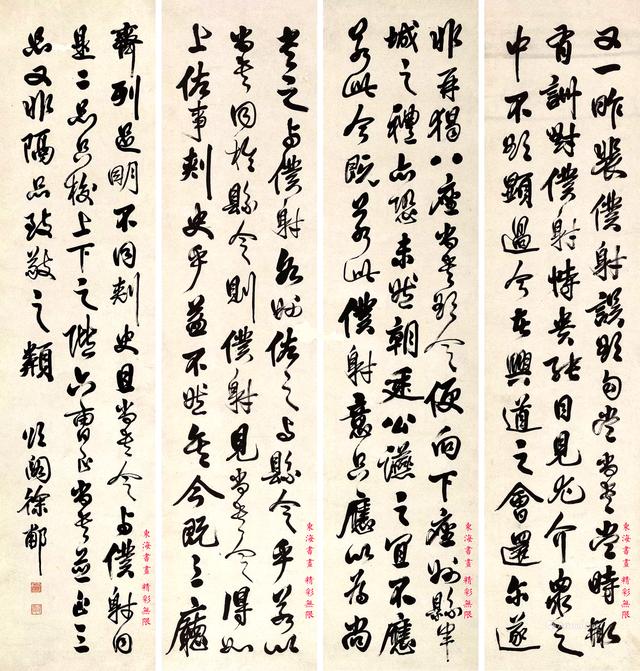 又一昨裴僕射誤欲勾當尚書當時輒
有詶對僕射恃貴張目見尤介衆之
中不欲顯過今者興道之會還尔遂
非再猲八座尚書欲令便向下座州縣軍
城之禮亦恐未然朝廷公讌之宜不應
若此今既若此僕射意只應以為尚
書之与僕射若州佐之与縣令乎若以
尚書同於縣令則僕射見尚書令得如
上佐事刺史乎益不然矣今既三廳
齊列足明不同刺史且尚書令与僕射同
是二品只校上下之階六曹尚書並正三
品又非隔品致敬之類
頌閣徐郙
東海書畫 精彩無限
東海書畫 精彩無限
東海書畫 精彩無限
東海書畫 精彩無限